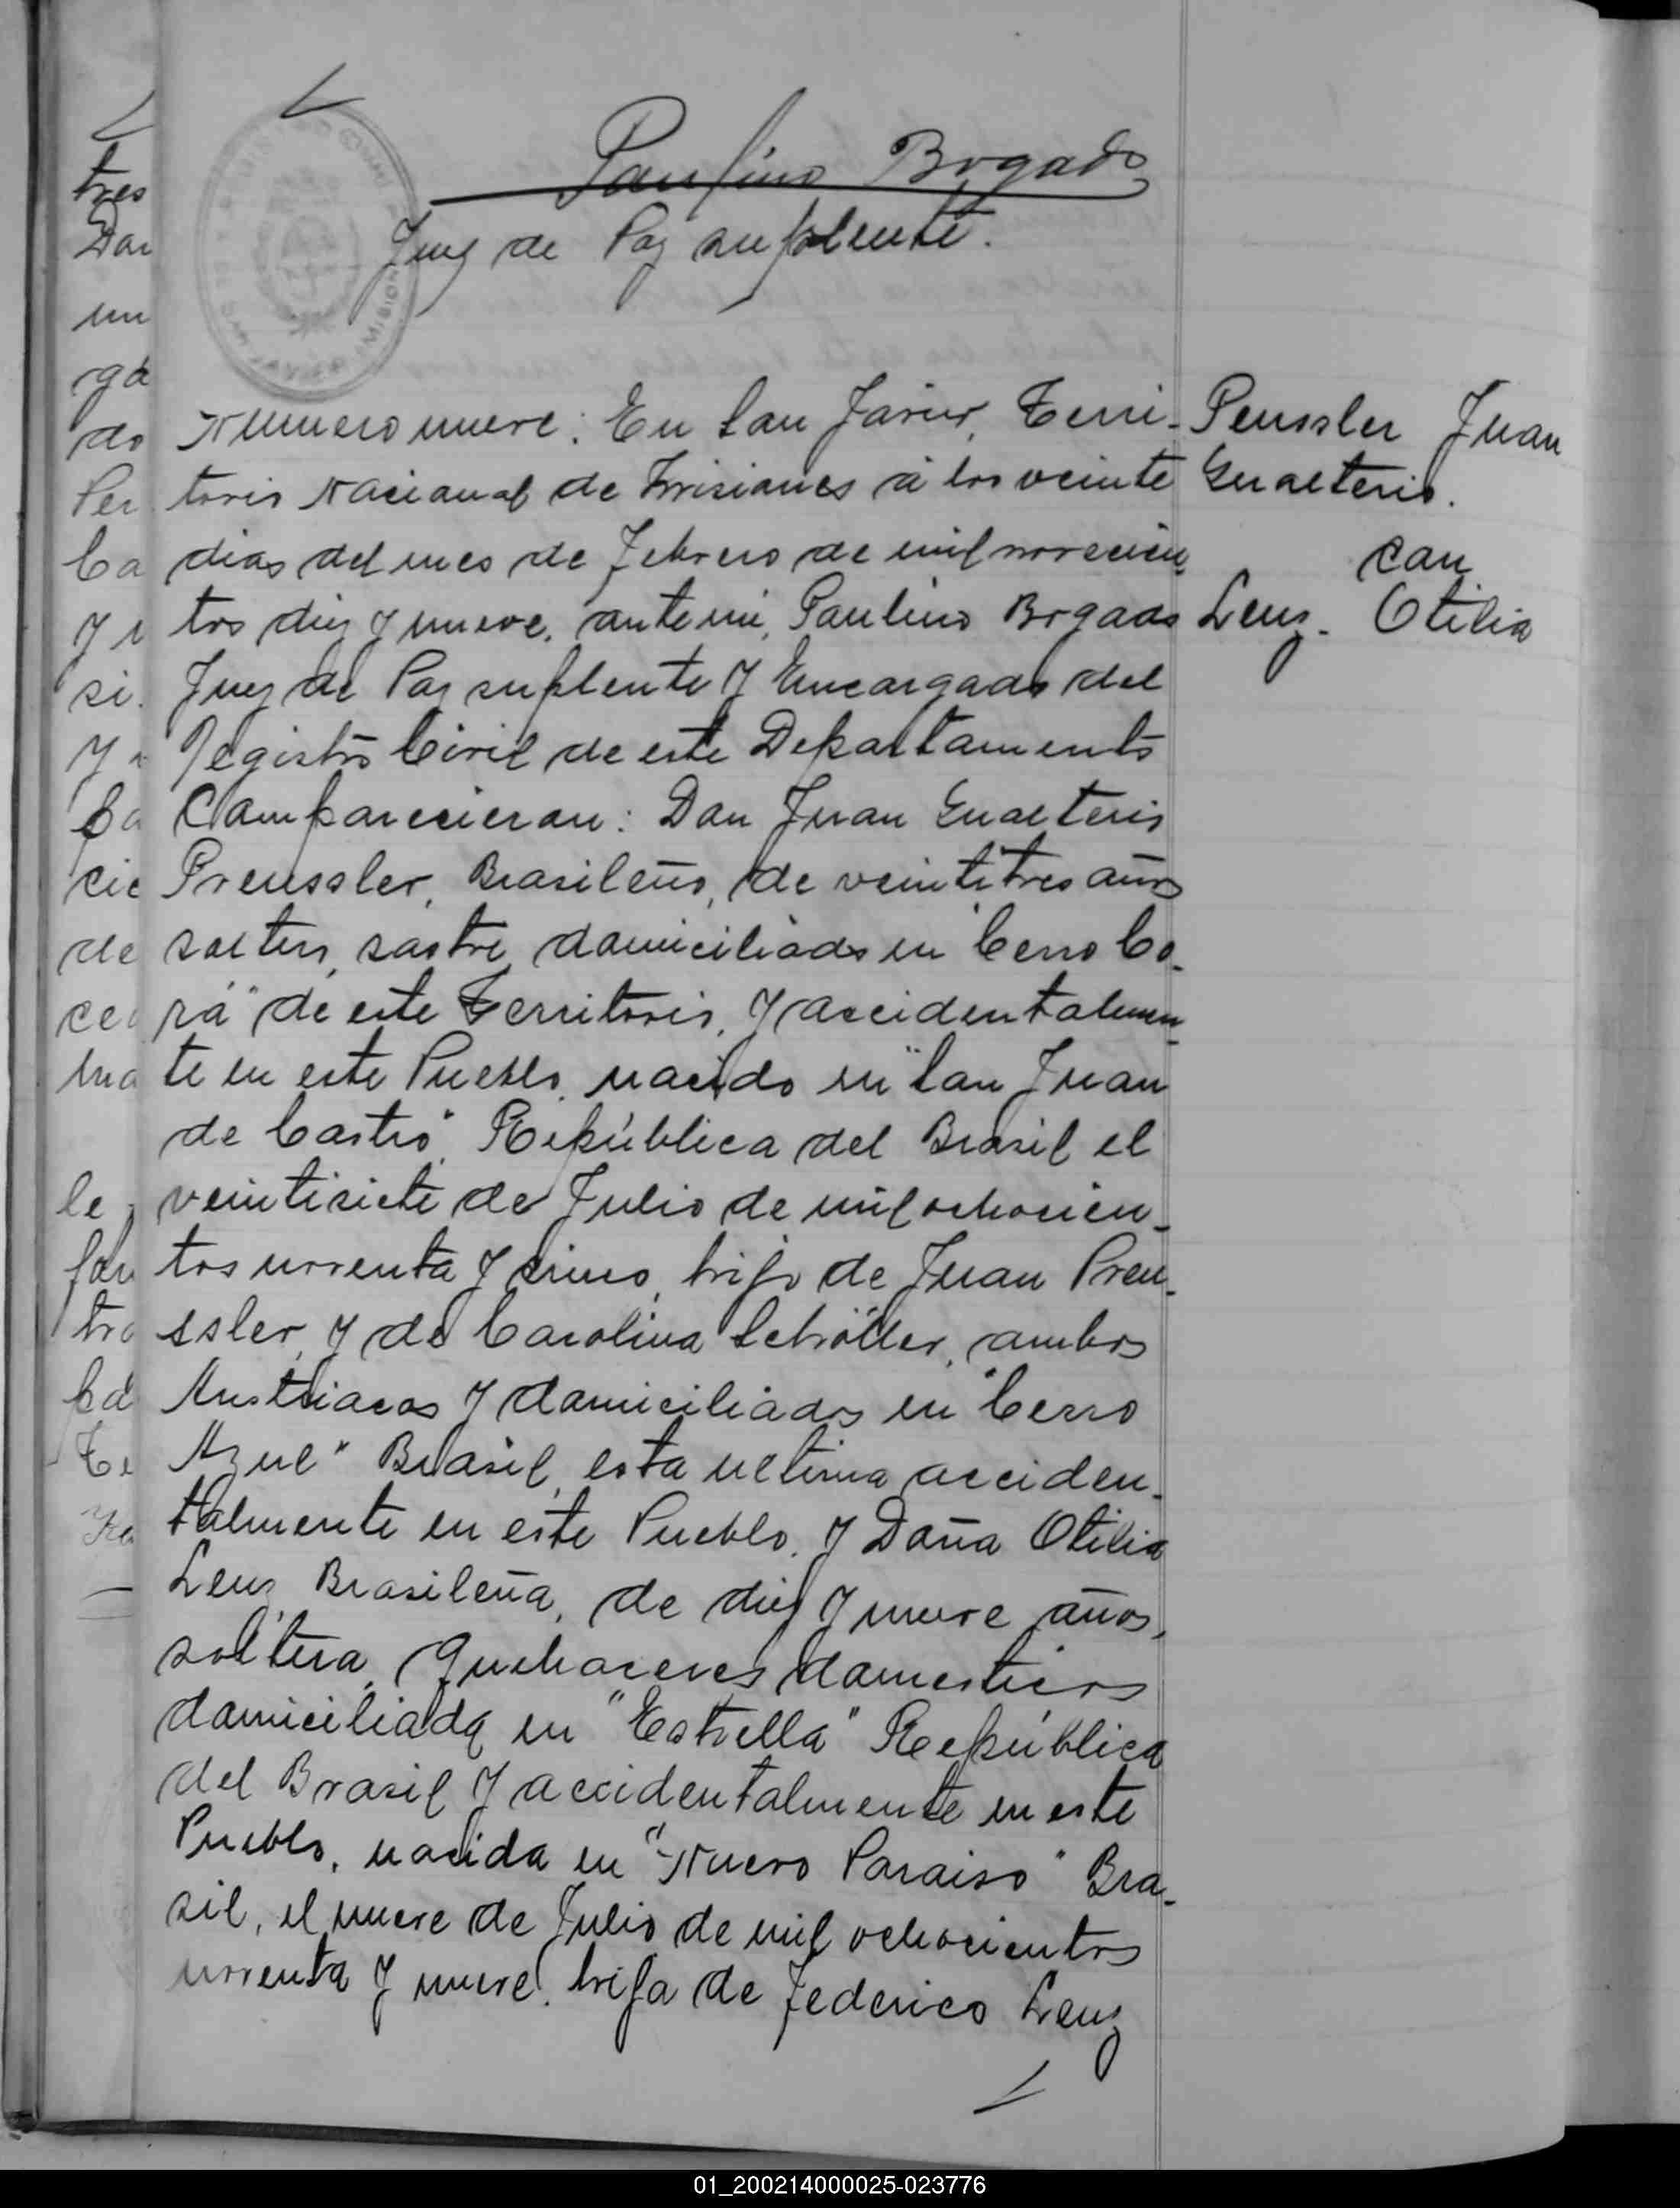 Paulino Bogado
Juez de Paz suplente.
Numero nueve: En San Javier, Terri-
torio Nacional de Misiones á los veinte
dias del mes de Febrero de mil novecien-
tos diez y nueve, ante mi, Paulino Bogado
Juez de Paz suplente y Encargado del
Registro Civil de este Departamento
Comparecieron: Don Juan Gualterio
Preussler, Brasileño, de veintitres años
soltero, sastre, domiciliado en Cerro Co-
rá" de este Territorio, y accidentalmen-
te en este Pueblo, nacido en "San Juan
de Castro", República del Brasil el
veintisiete de Julio de mil ochocien-
tos noventa y cinco, hijo de Juan Preu-
ssler, y de Carolina Schöller, ambos
Austriacos y domiciliados en "Cerro
Azul" Brasil, esta ultima acciden-
talmente en este Pueblo, y Doña Otilia
Lenz, Brasileña, de diez y nueve años,
soltera, quehaceres domesticos
domiciliada en "Estrella" República
del Brasil y accidentalmente en este
Pueblo, nacida en "Nuevo Paraiso" Bra-
sil, el nueve de Julio de mil ochocientos
noventa y nueve, hija de Federico Lenz
Peussler Juan
Gualterio.
con
Lenz. Otilia
tres
Don
un
ga
do
Per
Ca
y
si.
y
Ca
cie
de
ce
ma
le
fon
tro
pa
Te
01_200214000025-023776